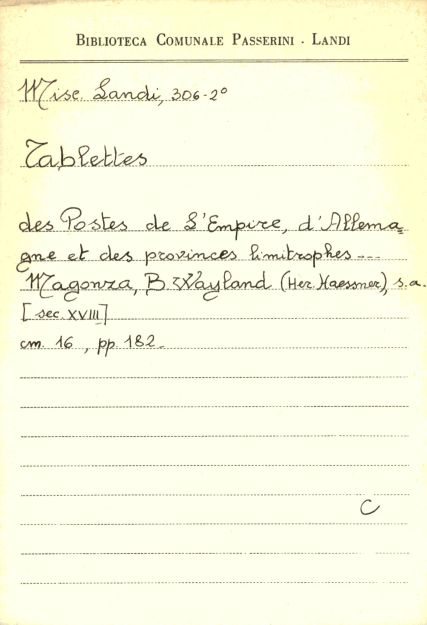 BIBLIOTECA COMUNALE PASSERINI - LANDI
Misc. Landi, 306-2°
Tablettes
des Postes de L'Empire, d'Allema=
gne et des provinces limitrophes ---
Magonza, B. Wayland (Her. Haessner), s.a.
[sec. XVIII]
cm. 16, pp. 182.
C